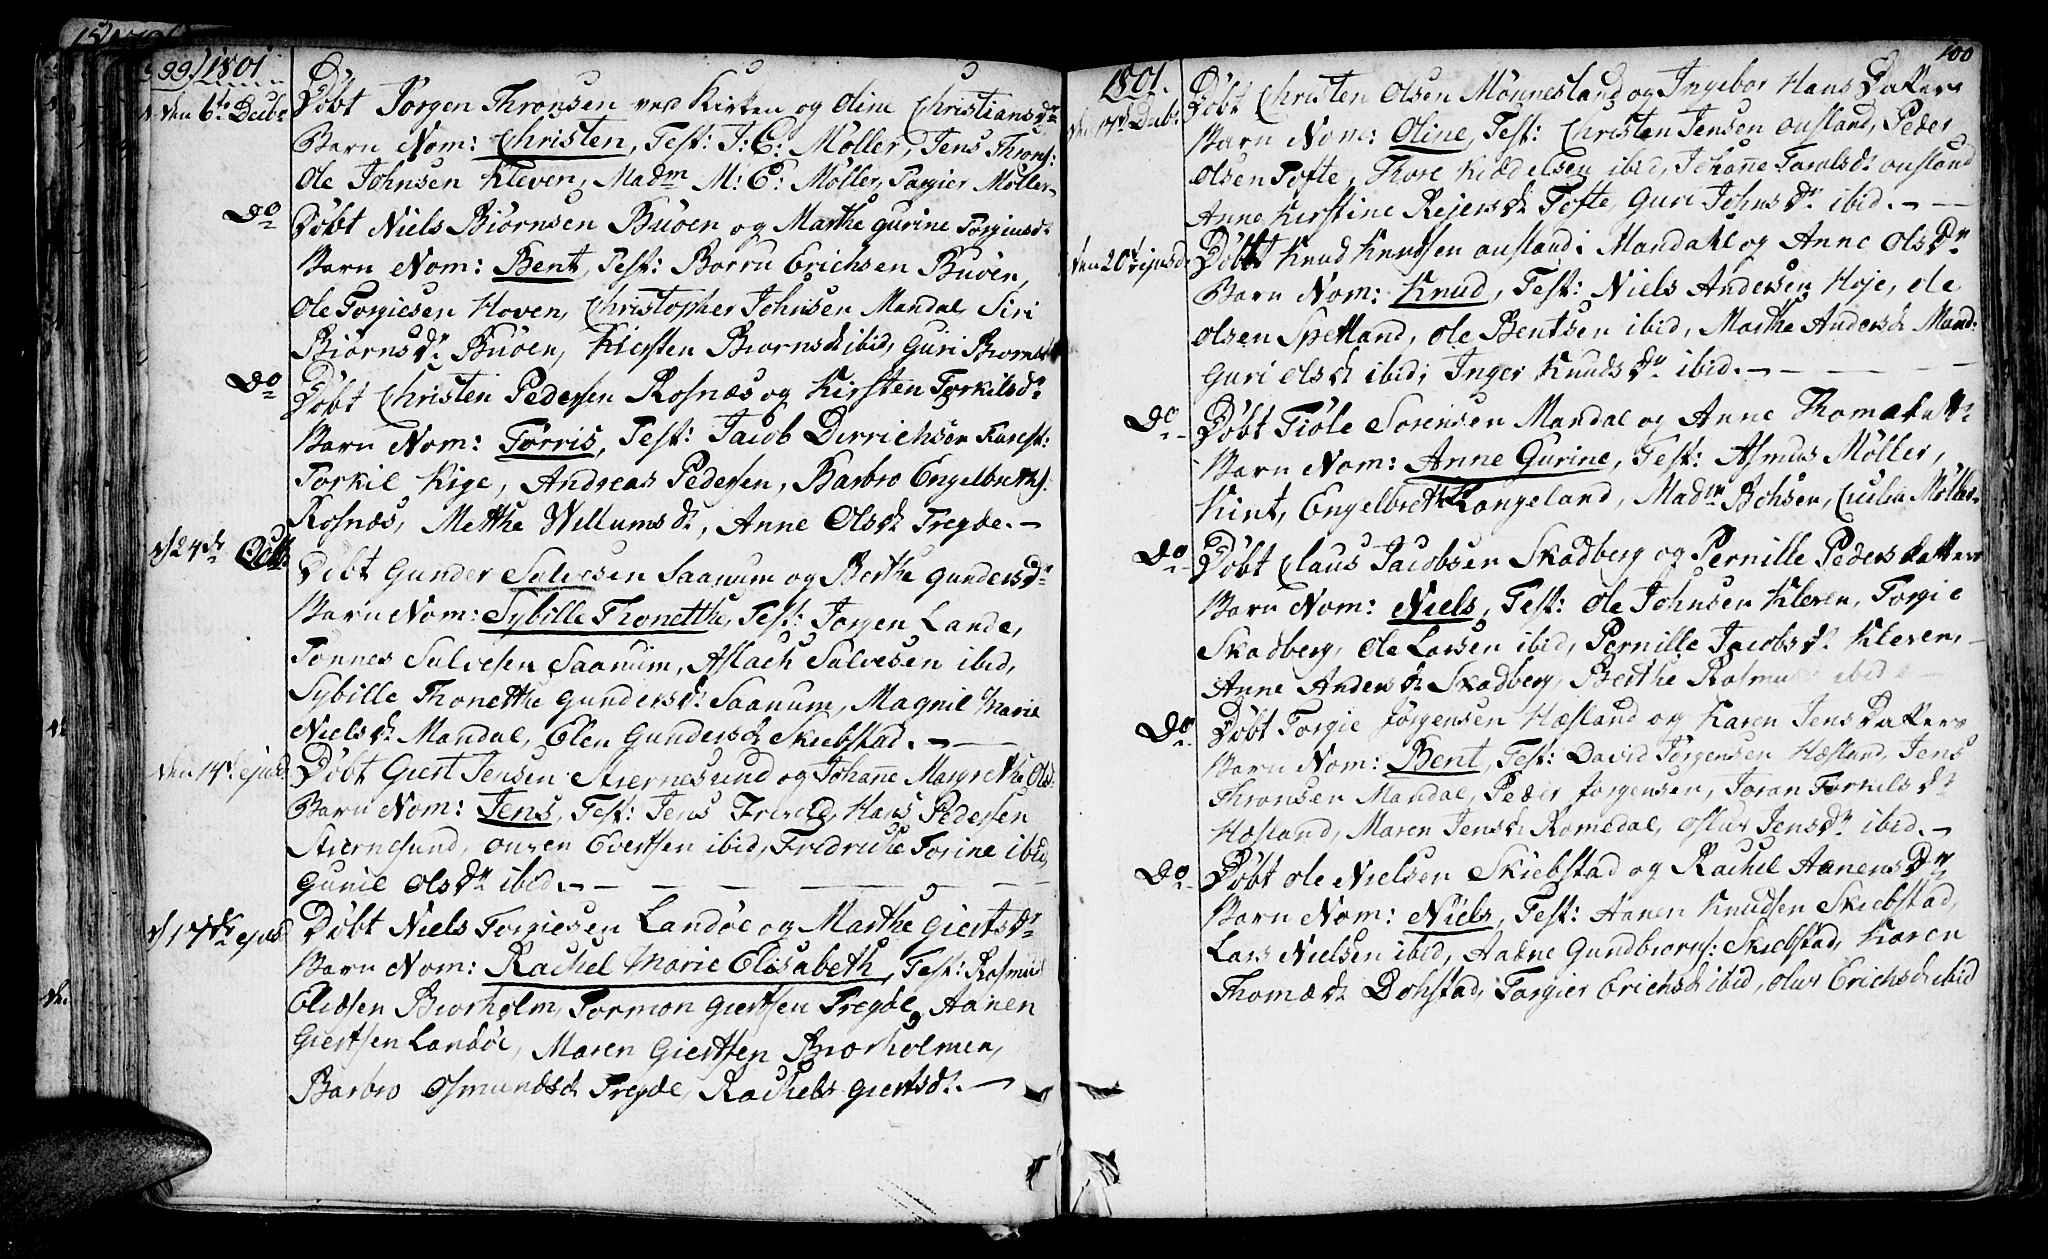 99. 1801.
den 6te Decbr Døbt Jørgen Thronsen ved Kirken og Oline Christiansdr
Barn Nom: Christen, Test: J: C: Møller, Jens Throns:
Ole Johnsen Kleven, Madm M: C: Møller, Torgier Møller
Do Døbt Niels Biørnsen Buøen og Marthe Gurine Torgiusdr
Barn Nom: Bent, Test: Borru Erichsen Buöen,
Ole Torgiesen Hoven, Christopher Johnsen Mandal, Siri
Biørnsdr Buöen, Kiersten Biornsdr ibid, Guri Biornsdr
Do Døbt Christen Pedersen Rosnæs og Kirsten Torkilsdr
Barn Nom: Torris, Test: Jacob Derrichson
Torkil Kige, Andreas Pedersen, Barbro Engelbreths:
Rosnæs, Metthe Willumsdr, Anne Olsdr Tregde. —
Døbt Gunder Salvesen Saanum og Berthe Gundersdr
Barn Nom: Sybille Thonetthe, Test: Jørgen Lande,
Tønnes Salvesen Saanum, Aslach Salvesen ibid,
Sybille Thonetthe Gundersdr Saanum, Magnil Marie
Nielsdr Mandal, Elen Gundersdr Skiebstad. —
den 14de ejusd Døbt Giert Jensen Stiernesund og Johanne Margrethe Ols:
Barn Nom: Jens, Test: Jens Hans Pedersen
Stiernesund, Evertsen ibid, Fredriche Torine ibid,
Gunil Olsdr ibid. —
d 17de ejusd Døbt Niels Torgiesen Landøe og Marthe Giertsdr
Barn Nom: Rachel Marie Elisabeth, Test: Rasmus
Eliæsen Biorholm, Tormon Giertsen Tregde, Aanen
Giertsen Landöe, Maren Giertsen Biorholmen,
Barbro Osmundsdr Tregde, Rachels Giertsdr. —
100
1801.
den 17de Decbr Døbt Christen Olsen Mønnesland og Ingebor Hans Datter
Barn Nom: Oline, Test: Christen Jensen ousland, Peder
Olsen Tofte, Thore Kiæddelsen ibid, Johanne Taralsdr ousland
Anne Kirstine Reiersdr Tofte, Guri Johnsdr ibid. —
den 20de ejusd Døbt Knud Knudsen ousland i Mandahl og Anne Olsdr
Barn Nom: Knud, Test: Niels Andersen Hoje, Ole
Olsen Spetland, Ole Bentsen ibid, Marthe Andersdr Mand:
Guri Olsdr ibid, Inger Knudsdr ibid. —
Do Døbt Tiøle Sørensen Mandal og Anne Thomasdr
Barn Nom: Anne Gurine, Test: Asmus Møller,
Kint, Engelbreth Kongeland, Madm Bohsen, Cecilia Møller
Do Døbt Claus Jacobsen Skadberg og Pernille Peders datter
Barn Nom: Niels, Test: Ole Johnsen Kleven, Torgie
Skadberg, Ole Larsen ibid, Pernille Jacobsdr Kleven,
Anne Andersdr Skadberg, Berthe ibid
Do Døbt Torgie Jørgensen Hæsland og Karen Jens Datter
Barn Nom: Bent, Test: David Jørgensen Hæsland, Jens
Thronsen Mandal, Peder Jorgensen, Joran Torkelsdr
Hæsland, Maren Jensdr Romedal, Jensdr ibid. —
Do Døbt Ole Nielsen Skiebstad og Rachel Aanensdr
Barn Nom: Niels, Test: Aanen Knudsen Skiebstad,
Lars Nielsen ibid, Aadne Gundbiorns: Skiebstad, Karen
Thomædr Dohstad, Torgier Erichsdr ibid, Erichsdr ibid